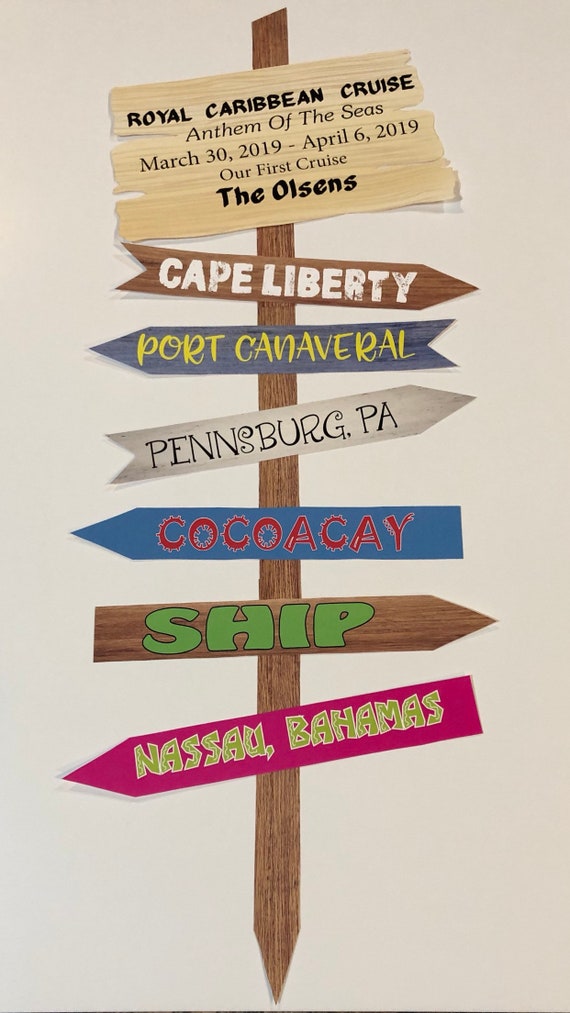 ROYAL CARIBBEAN CRUISE
Anthem Of The Seas
March 30, 2019 - April 6, 2019
Our First Cruise
The Olsens
CAPE LIBERTY
PORT CANAVERAL
PENNSBURG, PA
COCOACAY
SHIP
NASSAU, BAHAMAS